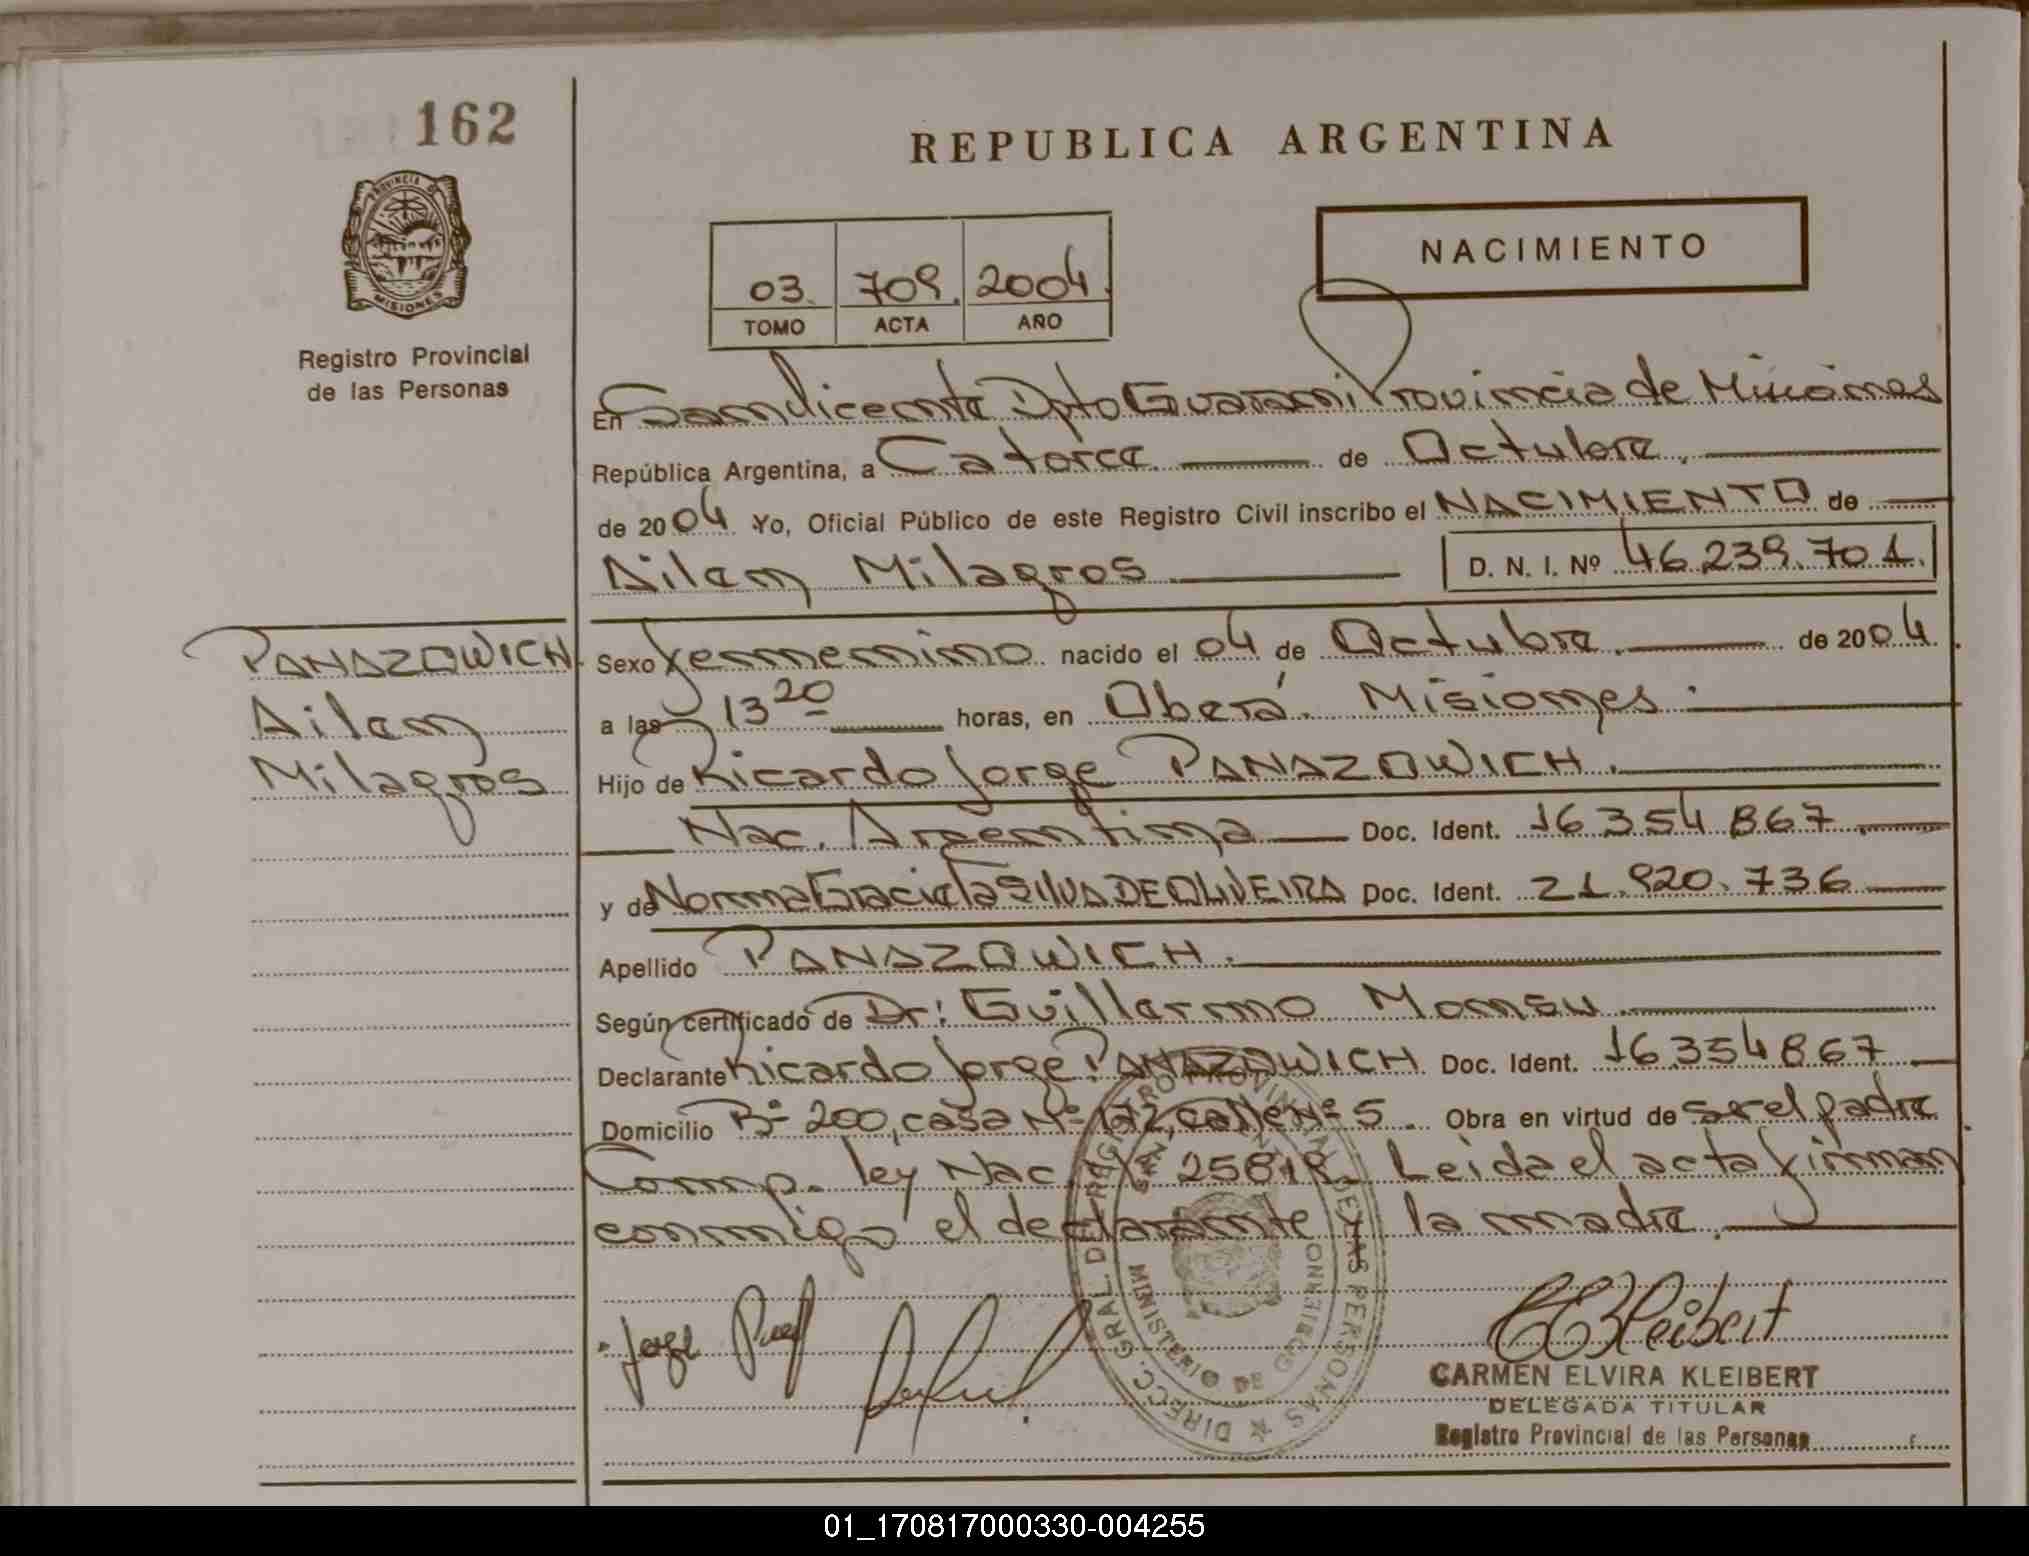 162
REPUBLICA ARGENTINA
PROVINCIA DE
MISIONES
Registro Provincial
de las Personas
NACIMIENTO
03 709 2004
TOMO ACTA AÑO
En San Vicente Dpto Guarani Provincia de Misiones
República Argentina, a Catorce de Octubre
de 2004 Yo, Oficial Público de este Registro Civil inscribo el NACIMIENTO de
Ailen Milagros D. N. I. Nº 46.239.701.
PANAZOWICH
Ailen
Milagros
Sexo femenino nacido el 04 de Octubre de 2004
a las 13 20 horas, en Oberá. Misiones
Hijo de Ricardo Jorge PANAZOWICH.
Nac. Argentina Doc. Ident. 16 354 867
y de Norma Graciela SILVA DE OLIVEIRA Doc. Ident. 21.920.736
Apellido PANAZOWICH.
Según certificado de Dr: Guillermo
Declarante Ricardo Jorge PANAZOWICH Doc. Ident. 16.354 867
Domicilio Bº 200, casa Nº 172, calle Nº 5. Obra en virtud de ser el padre
Comp. ley Nac. Nº 25818. Leida el acta firman
conmigo el declarante y la madre.
DIRECC. GRAL. DEL REGISTRO PROVINCIAL DE LAS PERSONAS
MINISTERIO DE GOBIERNO
SAN VICENTE
Jorge
CEKleibert
CARMEN ELVIRA KLEIBERT
DELEGADA TITULAR
Registro Provincial de las Personas
01_170817000330-004255